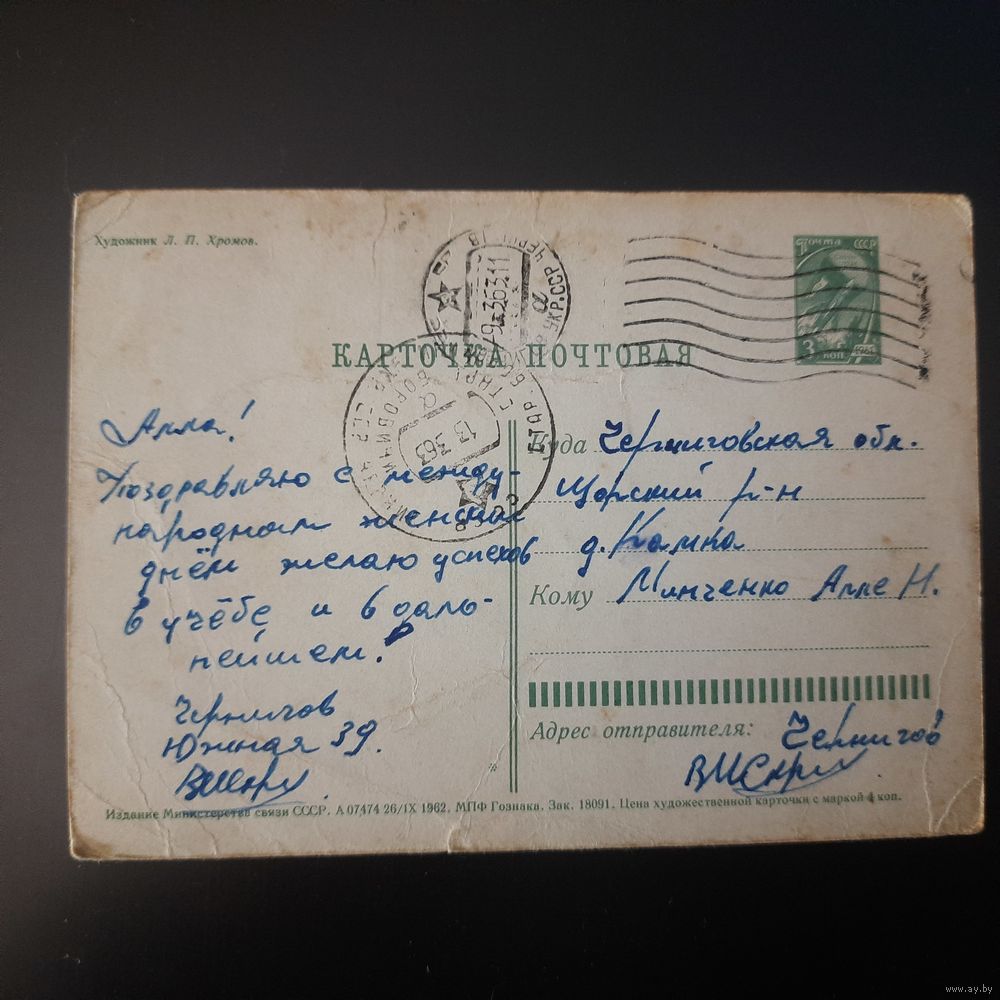 Художник Л. П. Хромов.
ПОЧТА СССР
3 КОП.
КАРТОЧКА ПОЧТОВАЯ
Алла!
Поздравляю с между-
народным женским
днём желаю успехов
в учёбе и в даль-
нейшем!
Чернигов
Южная 39.
Куда Черниговская обл.
Щорский р-н
д. Камка
Кому Минченко Алле Н.
Адрес отправителя: Чернигов
Издание Министерства связи СССР. А 07474 26/IX 1962. МПФ Гознака. Зак. 18091. Цена художественной карточки с маркой 4 коп.
www.ay.by